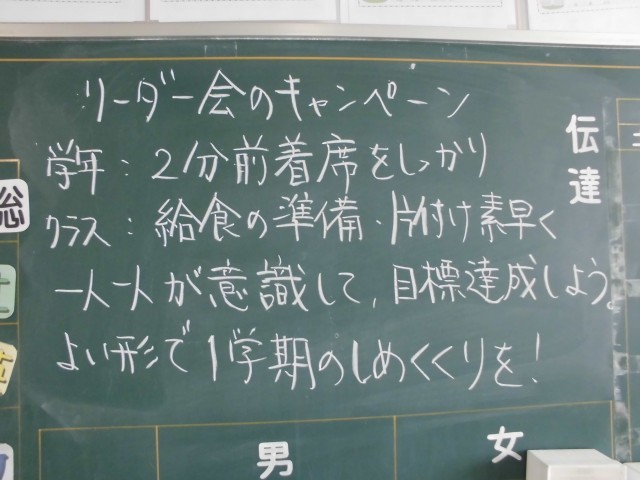 リーダー会のキャンペーン
学年：2分前着席をしっかり
クラス：給食の準備・片付け素早く
一人一人が意識して、目標達成しよう。
よい形で1学期のしめくくりを！
伝達
総
男
女